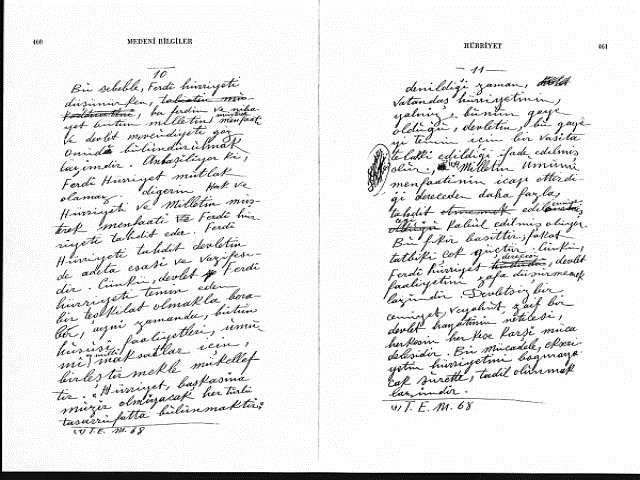 460
MEDENİ BİLGİLER
10
Bu sebeble, Ferdî hürriyeti
düşünürken,
bu ferdin ve niha
yet bütün milletin müşterek menfaati
ve devlet mevcudiyeti göz
önünde bulundurulmak
lâzımdır. Anlaşılıyor ki,
Ferdî Hürriyet mutlak
olamaz diğerin Hak ve
Hürriyeti ve Milletin müş-
terek menfaati Ferdî hür
riyeti tahdit eder. Ferdî
Hürriyeti tahdit devletin
de adeta esası ve vazifesi-
dir. Çünkü, devlet Ferdî
hürriyeti temin eden
bir teşkilât olmakla bera-
ber, aynı zamanda, bütün
hususî faaliyetleri, umu
mî millî maksatlar için,
birleştirmekle mükellef
tir. "Hürriyet, başkasına
muzır olmıyacak her türlü
tasarrufatta bulunmaktır"
(1) T. E. M. 68
HÜRRİYET
461
11
denildiği zaman,
vatandaş hürriyetinin,
yalnız, bunun gaye
olduğu, devletin, bu gaye
yi temin için bir vasıta
telâkki edildiği ifade edilmiş
olur. Milletin Umumî
menfaatinin icap ettirdi
ği dereceden daha fazla,
tahdit
kabul edilmiş oluyor.
Bu fikir basittir, fakat
tatbiki çok güçtür. Çünkü,
Ferdî hürriyet derecesi, devlet
faaliyetini zafa düşürmemek
lâzımdır. Devletsiz bir
cemiyet, veyahut, zaif bir
devlet hayatının neticesi,
herkesin herkese karşı müca
delesidir. Bu mücadele, ekseri
yetin hürriyetini boğmaya
cak surette, tadil olunmak
lâzımdır.
(1) T. E. M. 68